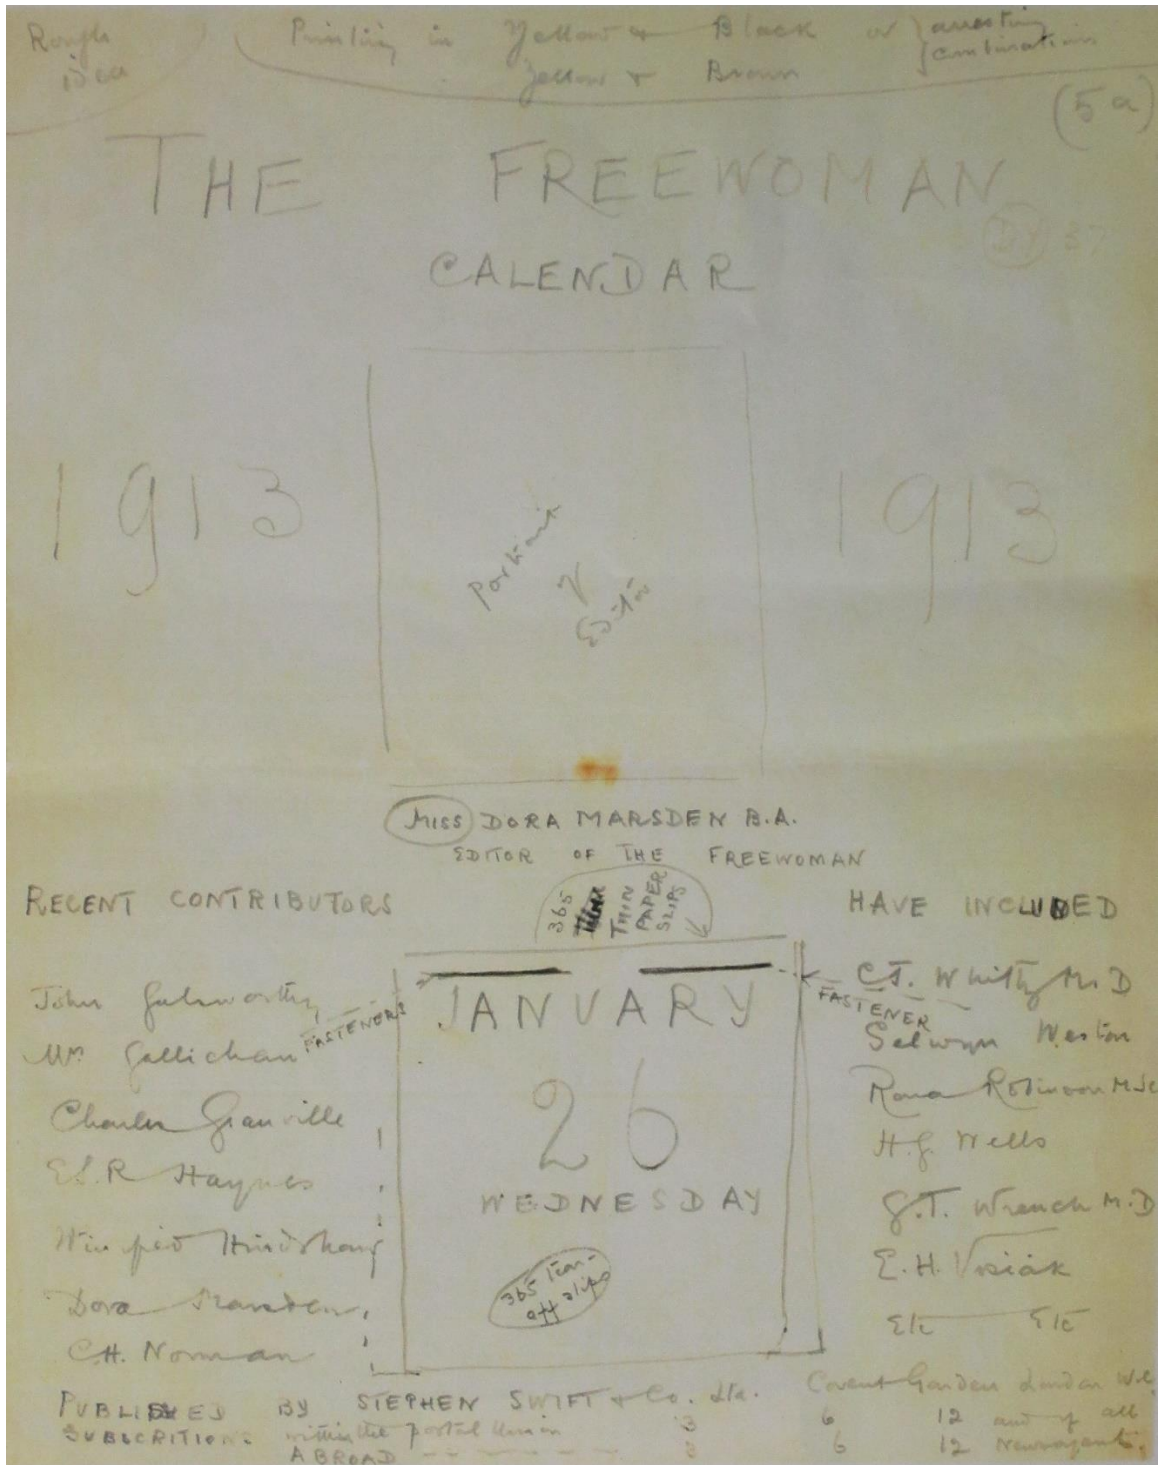 Rough
idea
Printing in Yellow & Black or
Yellow & Brown
arresting
combinations
(5a)
THE FREEWOMAN
37
CALENDAR
1913
1913
Portrait
of
Editor
Miss DORA MARSDEN B.A.
EDITOR OF THE FREEWOMAN
365
THIN
PAPER
SLIPS
RECENT CONTRIBUTORS
HAVE INCLUDED
John Galsworthy
Mr. Gallichan
Charles Granville
E.S.R Haynes
Dora Marsden
C.H. Norman
FASTENERS
JANUARY
26
WEDNESDAY
365 tear-
off slips
FASTENER
C.J. Whitby M.D
Selwyn Weston
Rona Robinson M.Sc
H.G. Wells
G.T. Wrench M.D
E.H. Visiak
Etc Etc
PUBLISHED BY STEPHEN SWIFT & Co. Ltd. Covent Garden London W.C.
SUBSCRITIONS within the postal Union 3 6 12 and of all
ABROAD 3 6 12 Newsagents.